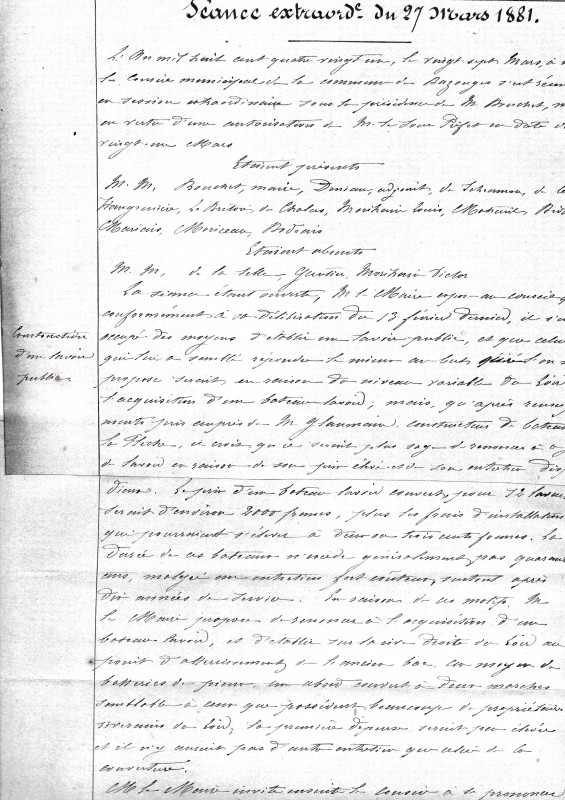 Séance extraord.e du 27 Mars 1881.
L'An mil huit cent quatre vingt un, le vingt sept Mars, à
le Conseil municipal de la commune de Bazouges s'est réuni
en session extraordinaire sous la présidence de M. Bouchet,
en vertu d'une autorisation de M. le Sous Préfet en date
vingt-un Mars
Etaient présents
M.M. Bouchet, maire, Deniau, adjoint, de
Le Breton, de Louis,
Moriceau,
Etaient absents
M.M. de la Selle, Gautier, Victor
La séance étant ouverte, M. le Maire expose au conseil
conformément à sa délibération du 13 février dernier, il s'
occupé des moyens d'établir un lavoir public, et que celui
qui lui a semblé répondre le mieux au but qu'on
propose serait en raison du niveau variable du Loir
l'acquisition d'un bateau lavoir; mais, qu'après
pris auprès de M. constructeur de bateaux
la Flèche, il croit qu'il serait plus sage de renoncer à
de lavoir en raison de son prix élevé et de son entretien
Construction
d'un lavoir
public.
dieux. Le prix d'un bateau lavoir couvert, pour 12
serait d'environ 2000 francs, plus les frais d'installation
qui pourraient s'élever à deux ou trois cents francs. La
durée de ces bateaux n'excède généralement pas quarante
ans, malgré un entretien fort coûteux, surtout après
dix années de service. En raison de ces motifs, M.
le Maire propose de renoncer à l'acquisition d'un
bateau lavoir, et d'établir sur la rive droite du Loir au
point d'atterrissement de l'ancien bac, au moyen de
de pierre, un abord couvert à deux marches
semblable à ceux que possèdent beaucoup de propriétaires
riverains du Loir; la première dépense serait peu élevée
et il n'y aurait pas d'autre entretien que celui de la
couverture.
M. le Maire invite ensuite le conseil à se prononcer